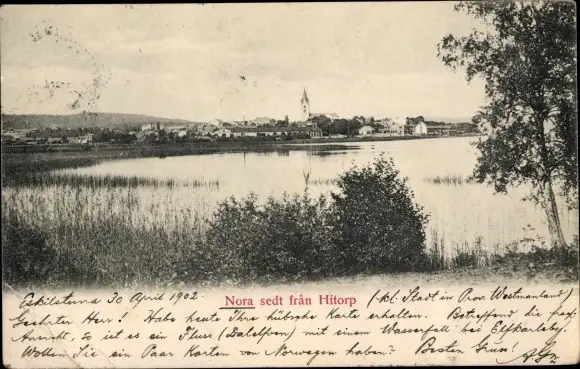 Nora sedt från Hitorp
Eskilstuna 30 April 1902
(kl. Stadt in Prov. Westmanland)
Geehrter Herr! Habe heute Ihre hübsche Karte erhalten. Betreffend die frag.
Ansicht, so ist es ein Fluss (Dalelfven) mit einem Wasserfall bei Elfkarleby.
Wollen Sie ein Paar Karten von Norwegen haben? Besten Gruss!